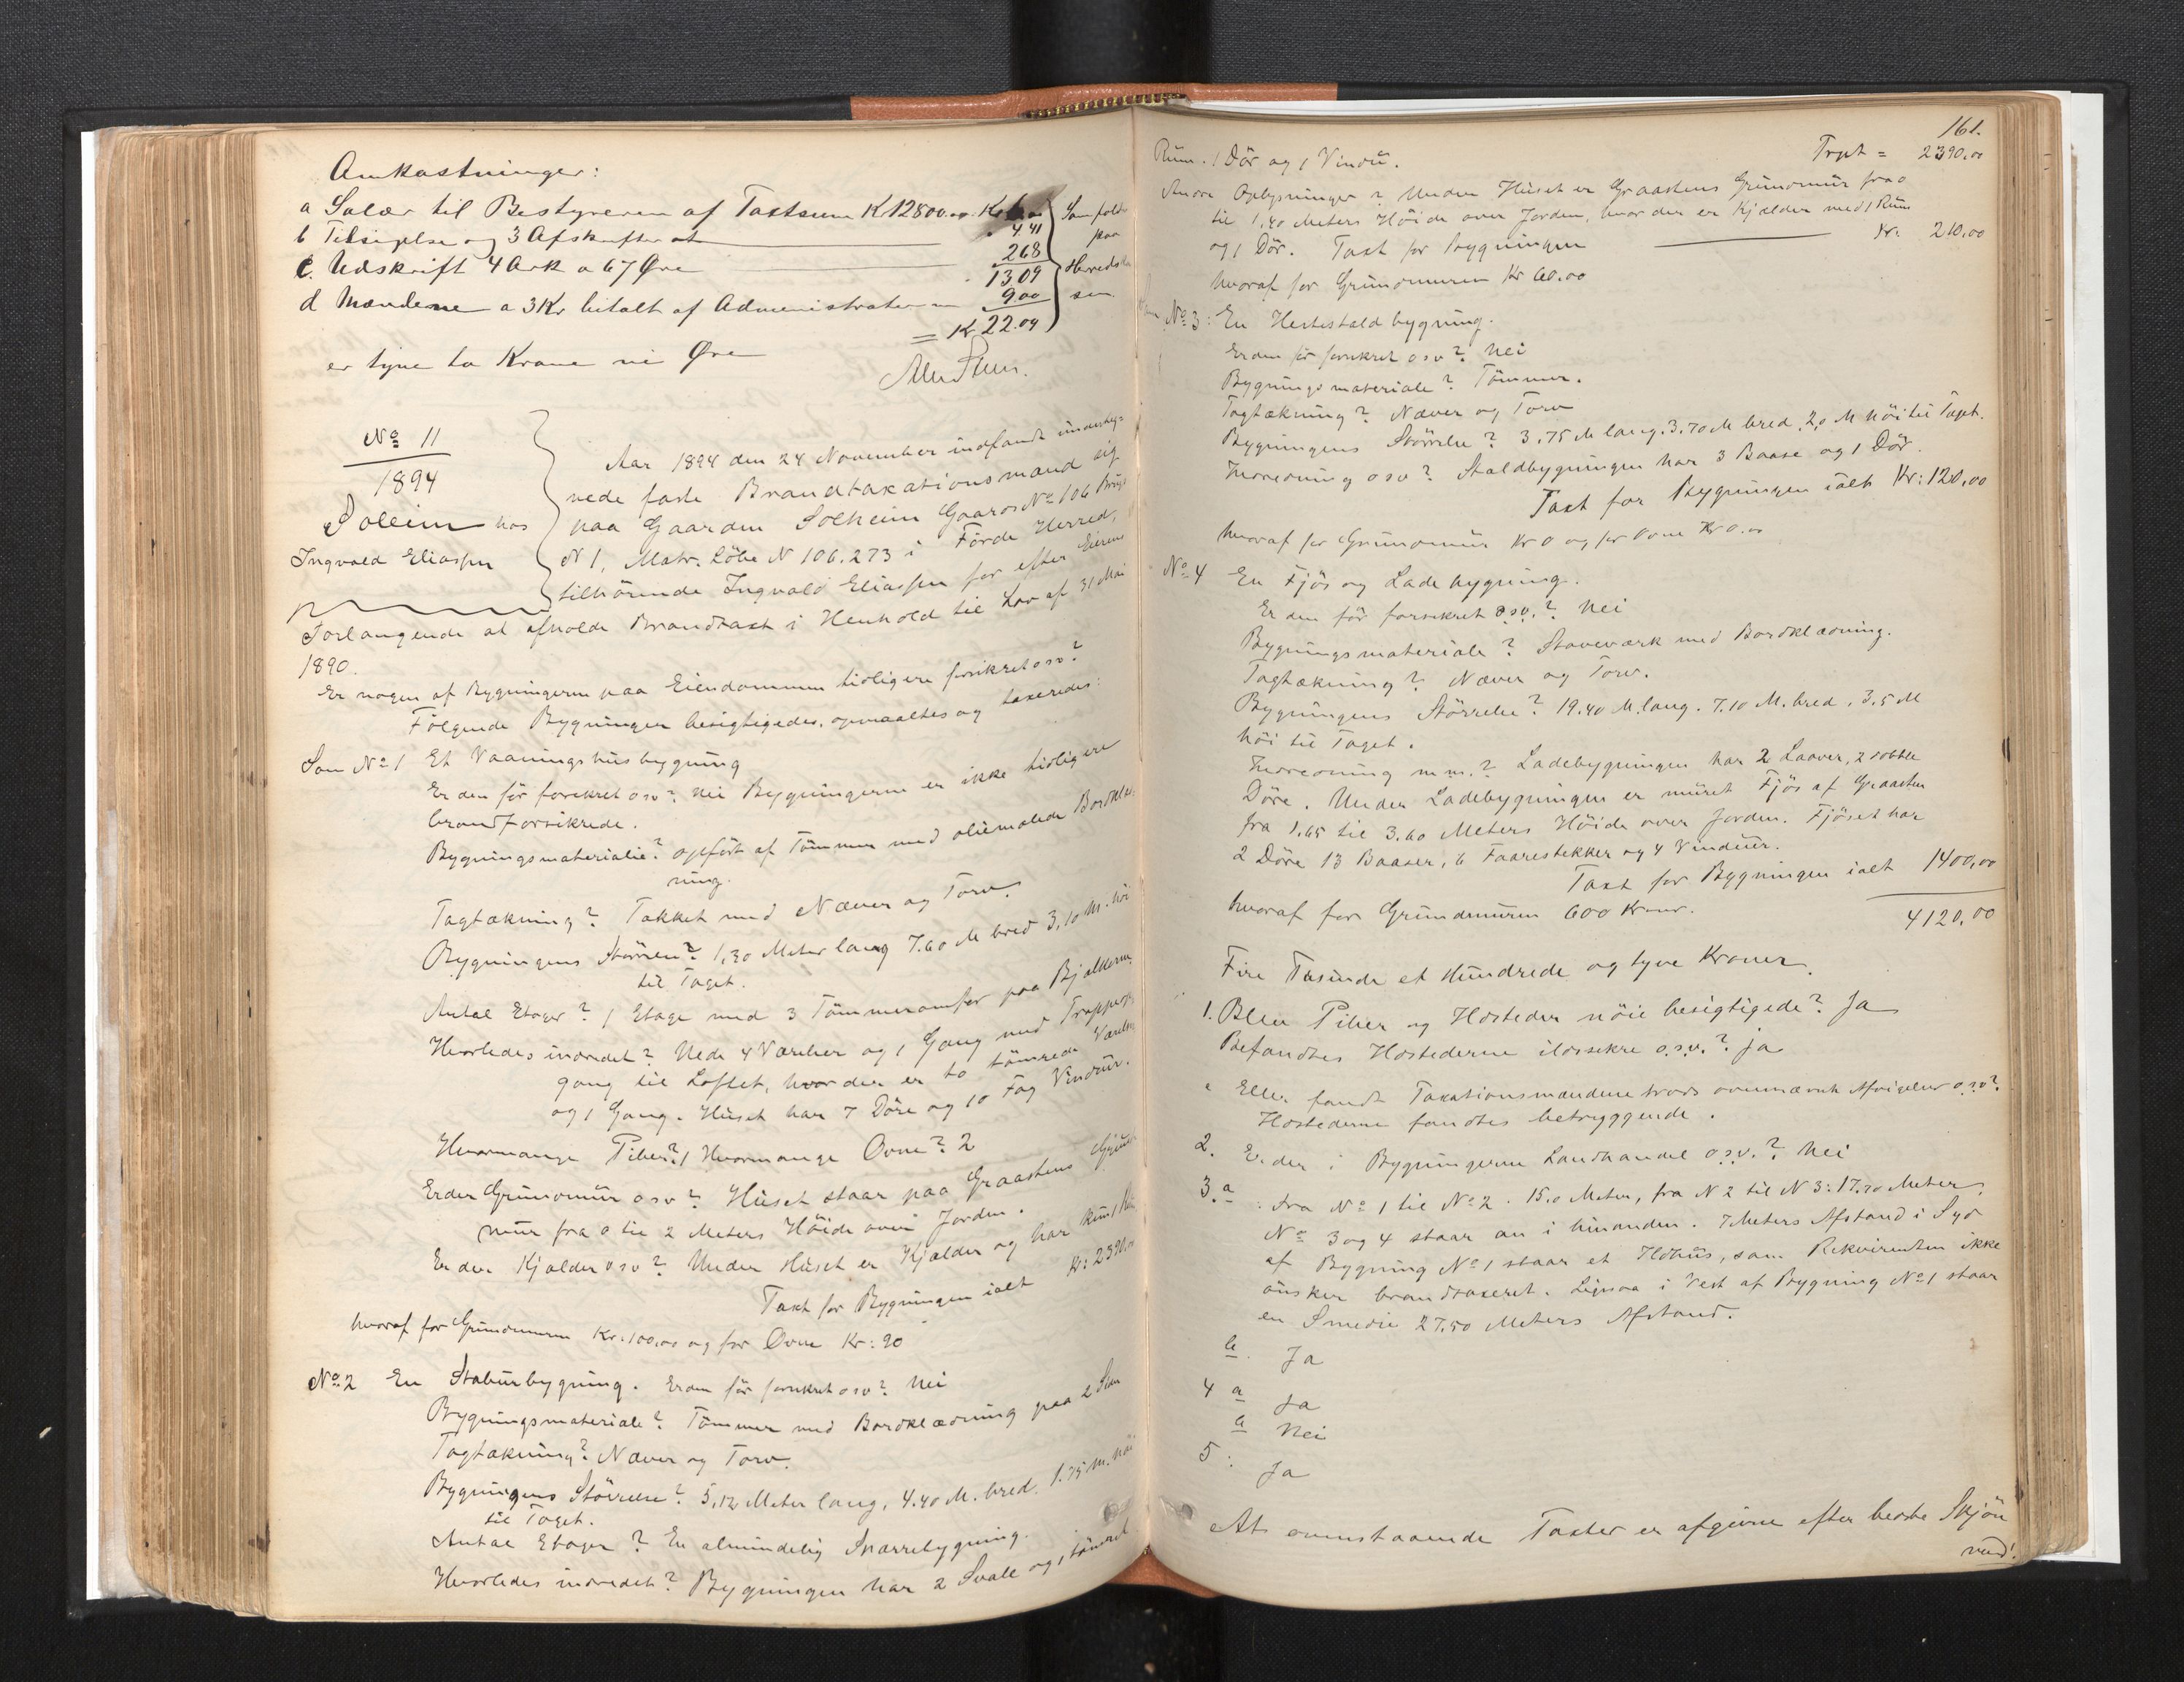 Omkostninger:
a Salær til Bestyreren af Taxtsum Kr 12800.00. Kr
b Tilsigelse og 3 Afskrifter at 4.41
c. Udskrift 4 Ark a 67 Øre 268
13.09
d Mændene a 3 Kr betalt af Administrator 9.00
= Kr 22.09
Som
paa
Hereds
er tyve to Krone ni Øre
No 11
1894
Soleim hos
Ingvald Eliassen
Aar 1894 den 24 November indfandt underteg-
nede faste Brandtaxationsmænd sig
paa Gaarden Solheim Gaards No 106 Brugs
N 1, Matr. Løbe N 106.273 i Førde Herred,
tilhørende Ingvald Eliassen for efter Eierens
Forlangende at afholde Brandtaxt i Henhold til Lov af 31 Mai
1890.
Er nogen af Bygningerne paa Eiendommen tidligere forsikret osv?
Følgende Bygninger besigtigedes, opmaaltes og taxeredes:
Som No 1 Et Vaaningshusbygning
Er den før forsikret osv? Nei Bygningerne er ikke tidligere
brandforsikrede.
Bygningsmateriale? opført af Tømmer med oliemalede Bordklæd-
ning.
Tagtækning? Tækket med Næver og Torv.
Bygningens Størrelse? 1,30 Meter lang 7.60 M bred 3,10 M. høi
til Taget.
Antal Etager? 1 Etage med 3 Tømmeromfar paa Bjælkerne.
Hvorledes indredet? Nede 4 Værelser og 1 Gang med Trappeop-
gang til Loftet, hvor der er to tømrede Værelser
og 1 Gang. Huset har 7 Døre og 10 Fag Vinduer.
Hvormange Piber? 1 Hvormange Ovne? 2
Er der Grundmur osv? Huset staar paa Graastens Grund-
mur fra 0 til 2 Meters Høide over Jorden.
Er der Kjælder osv? Under Huset er Kjælder og har kun 1 Rum
Taxt for Bygningen ialt Kr: 2390.00
hvoraf for Grundmuren Kr: 100,00 og for Ovne Kr: 90
No 2 En Staburbygning. Er den før forsikret osv? Nei
Bygningsmateriale? Tømmer med Bordklædning paa 2 Sider
Tagtækning? Næver og Torv.
Bygningens Størrelse? 5,12 Meter lang, 4.40 M. bred. 1.75 M. høi
til Taget.
Antal Etager? En almindelig Sparrebygning.
Hvorledes indredet? Bygningen har 2 Svale og 1 tømret
161.
Trpt = 2390.00
Rum. 1 Dør og 1 Vindu.
Andre Oplysninger? Under Huset er Graastens Grundmur fra 0
til 1,40 Meters Høide over Jorden, hvor der er Kjælder med 1 Rum
og 1 Dør. Taxt for Bygningen Kr. 210.00
hvoraf for Grundmuren Kr 60.00
No 3: En Hestestald bygning.
Er den før forsikret osv? Nei
Bygningsmateriale? Tømmer.
Tagtækning? Næver og Torv
Bygningens Størrelse? 3.75 M lang. 3.70 M bred, 2,0 M høi til Taget.
Indredning osv? Staldbygningen har 3 Baase og 1 Dør.
Taxt for Bygningen ialt Kr: 120.00
hvoraf for Grundmur Kr 0 og for Ovne Kr 0.00
No 4 En Fjøs og Lade bygning.
Er den før forsikret osv.? Nei
Bygningsmateriale? Staveværk med Bordklædning.
Tagtækning? Næver og Torv.
Bygningens Størrelse? 19.40 M. lang. 7.10 M. bred, 3,5 M
høi til Taget.
Indredning m.m.? Ladebygningen har 2 Laaver, 2 dobble
Døre. Under Ladebygningen er muret Fjøs af Graasten
fra 1.65 til 3.60 Meters Høide over Jorden. Fjøset har
2 Døre 13 Baaser, 6 Faarestekker og 4 Vinduer.
Taxt for Bygningen ialt 1400,00
hvoraf for Grundmuren 600 Kroner.
4120,00
Fire Tusinde et Hundrede og tyve Kroner.
1. Blev Piber og Ildsteder nøie besigtigede? Ja
Befandtes Ildstederne ildssikre o.s.v.? Ja
Eller fandt Taxationsmændene trods ovennævnte Afvigelser o.s.v?
Ildstederne fandtes betryggende.
2. Er der i Bygningerne Landhandel o.s.v.? Nei
3.a : Fra No 1 til No 2. 15,0 Meter, fra N 2 til N 3: 17.70 Meter,
No 3 og 4 staar an i hinanden. 7 Meters Afstand i Syd
af Bygning No 1 staar et Ildhus, som Rekvirenten ikke
ønsker brandtaxeret. Ligesaa i Vest af Bygning No 1 staar
en Smedie 27.50 Meters Afstand.
b. Ja
4 a Ja
b Nei
5: Ja
At ovenstaaende Taxter er afgivne efter bedste Skjøn
ved!